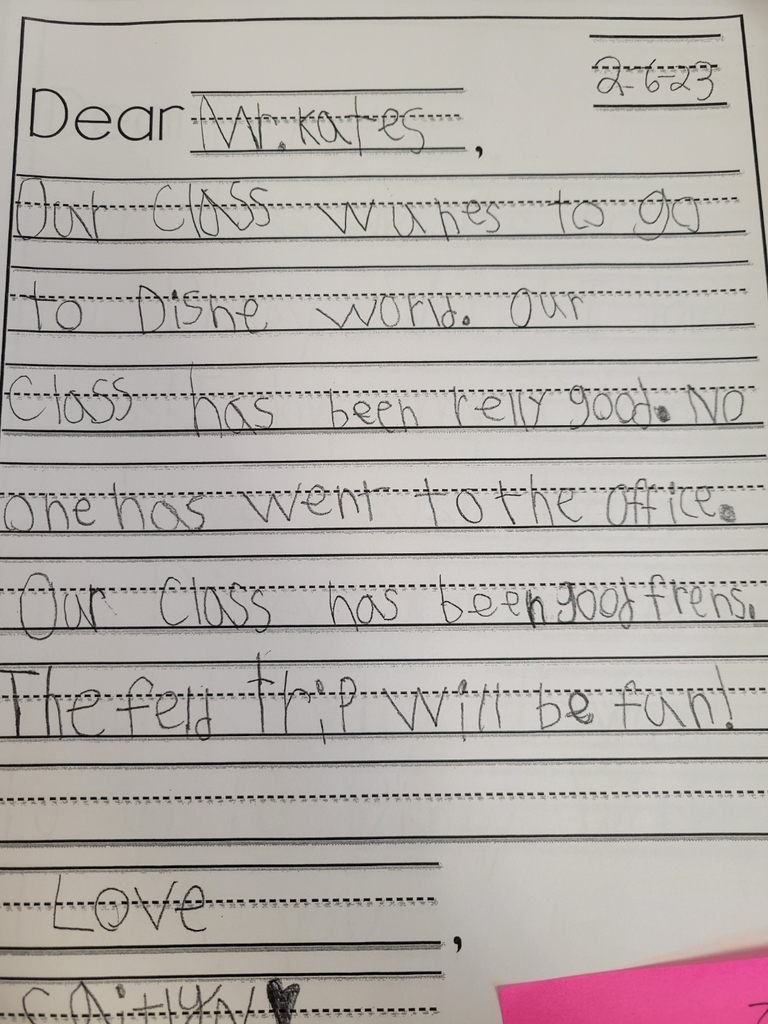 2-6-23
Dear Mr. kates,
Our Class wanes to go
to Disne world. Our
Class has been relly good. No
one has went to the office.
Our Class has been good frens.
The feld trip will be fun!
Love,
CAitlyN